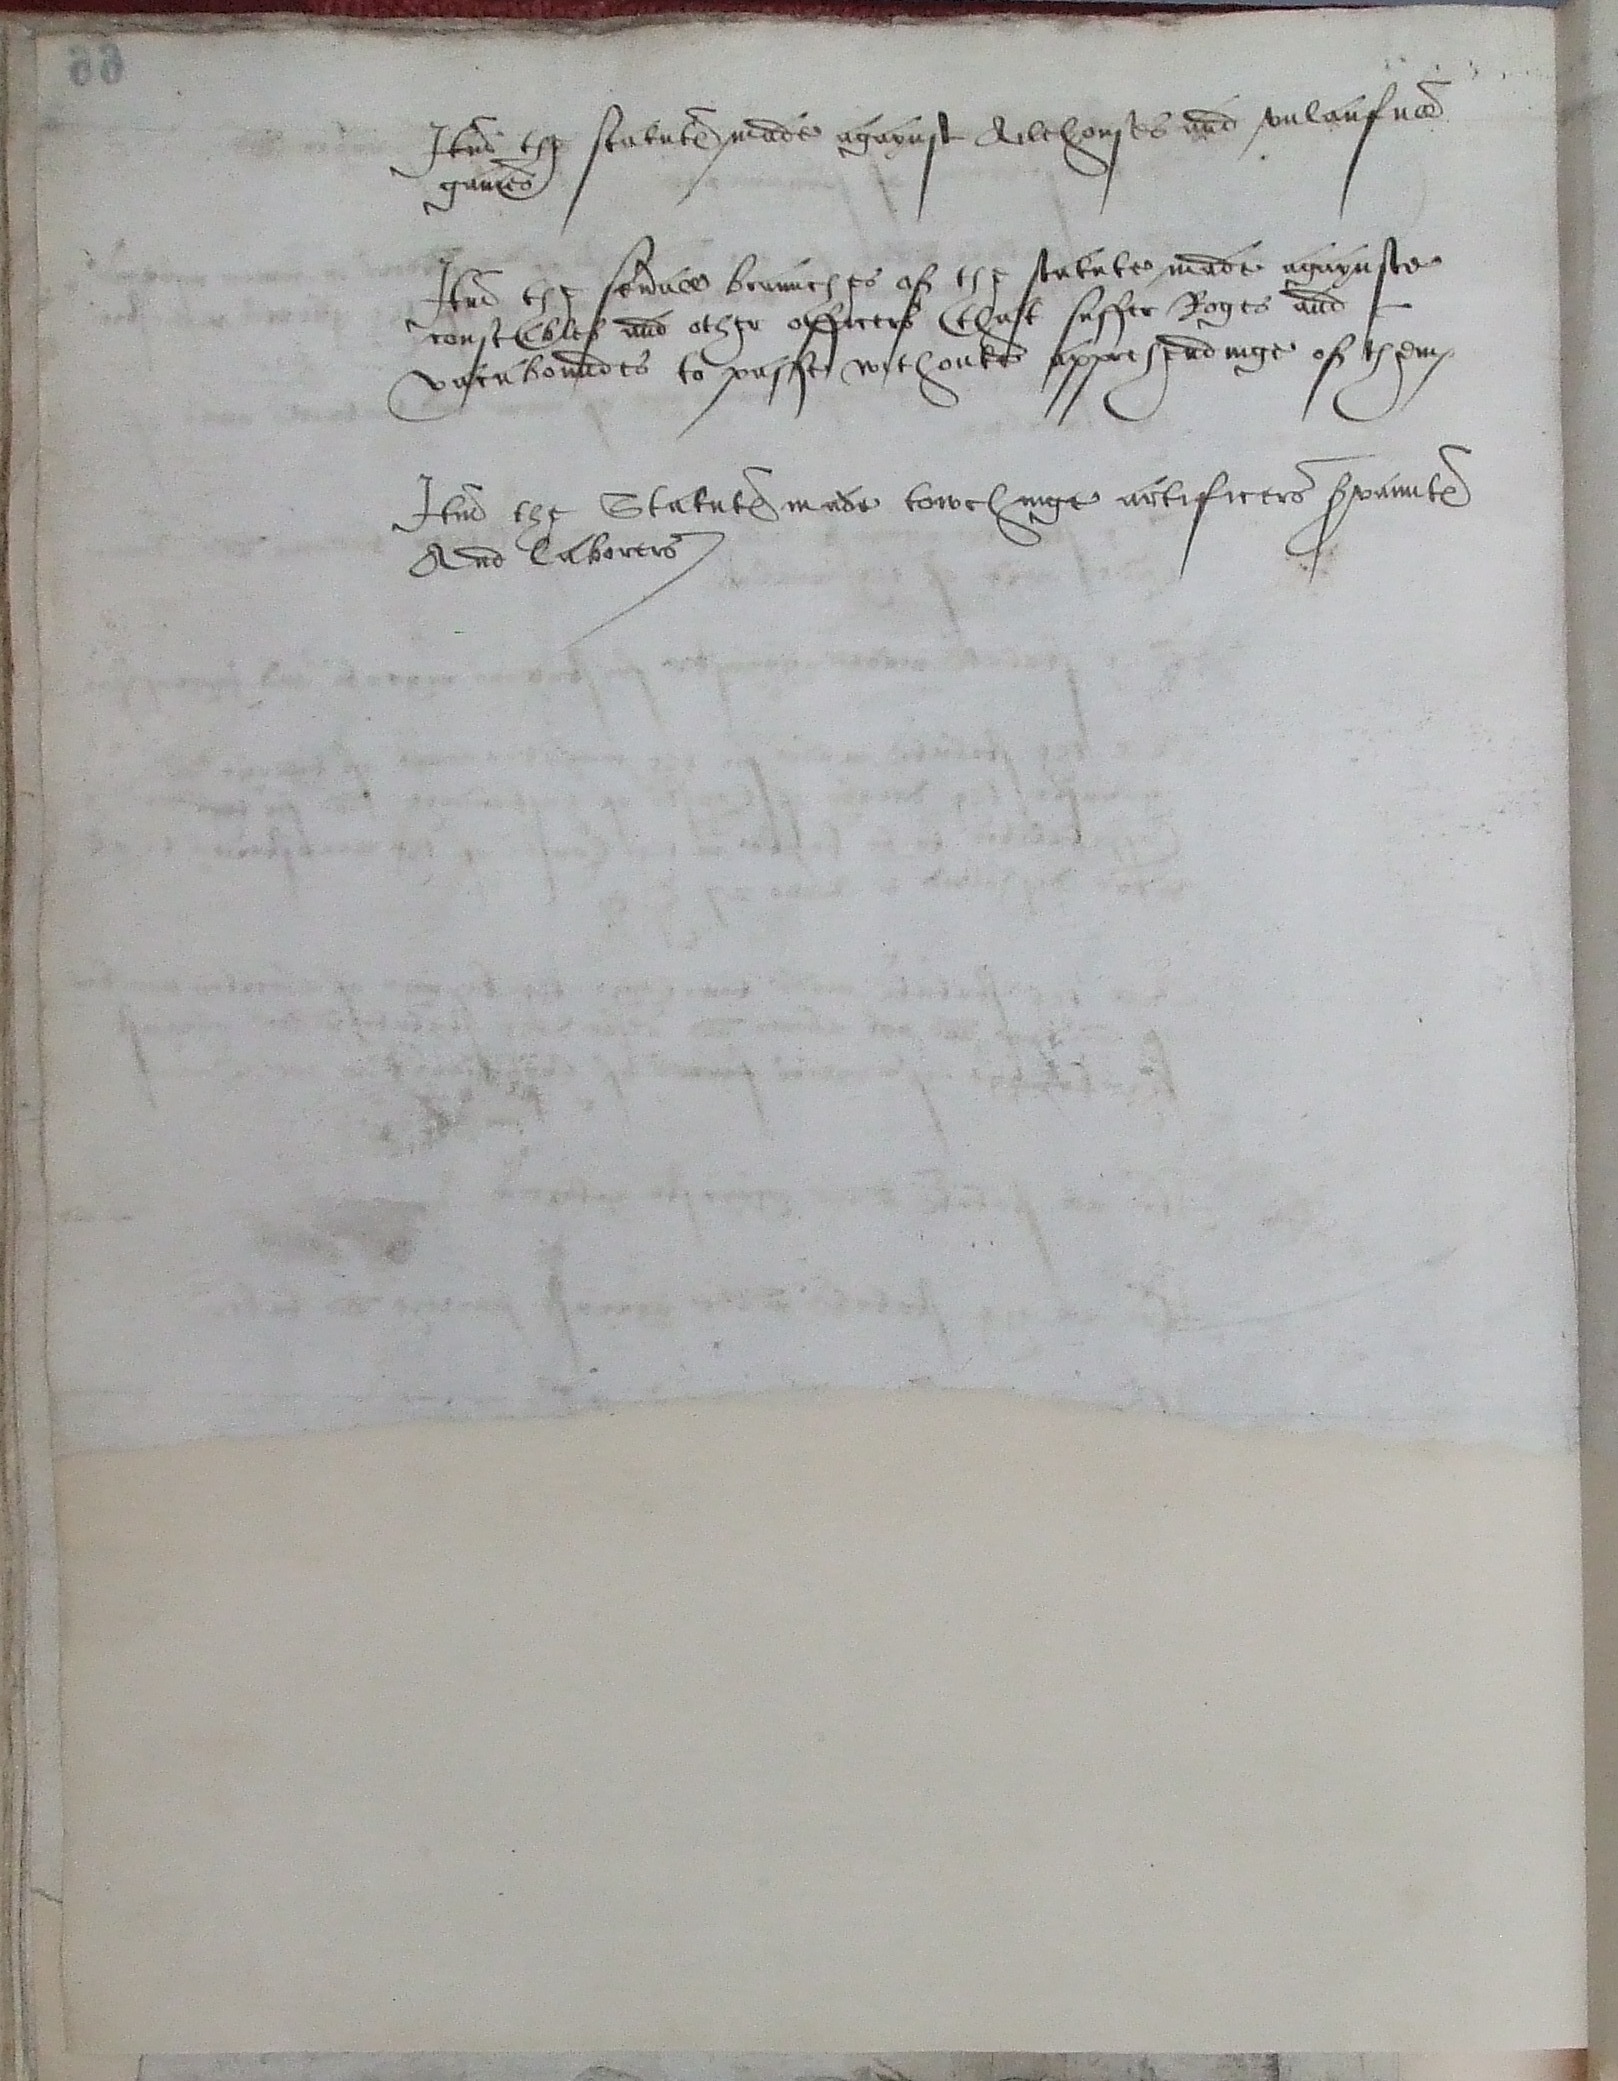 Itm the statute made agaynst Ailehouses and vnlaufull
games
Itm the seuall braunches of the statute made agaynste
constables and other officers that suffer Roges and
vacaboundes to passe wthoute apprehendinge of them
Itm the Statute made towchinge artificers s'vaunte
And Laborers